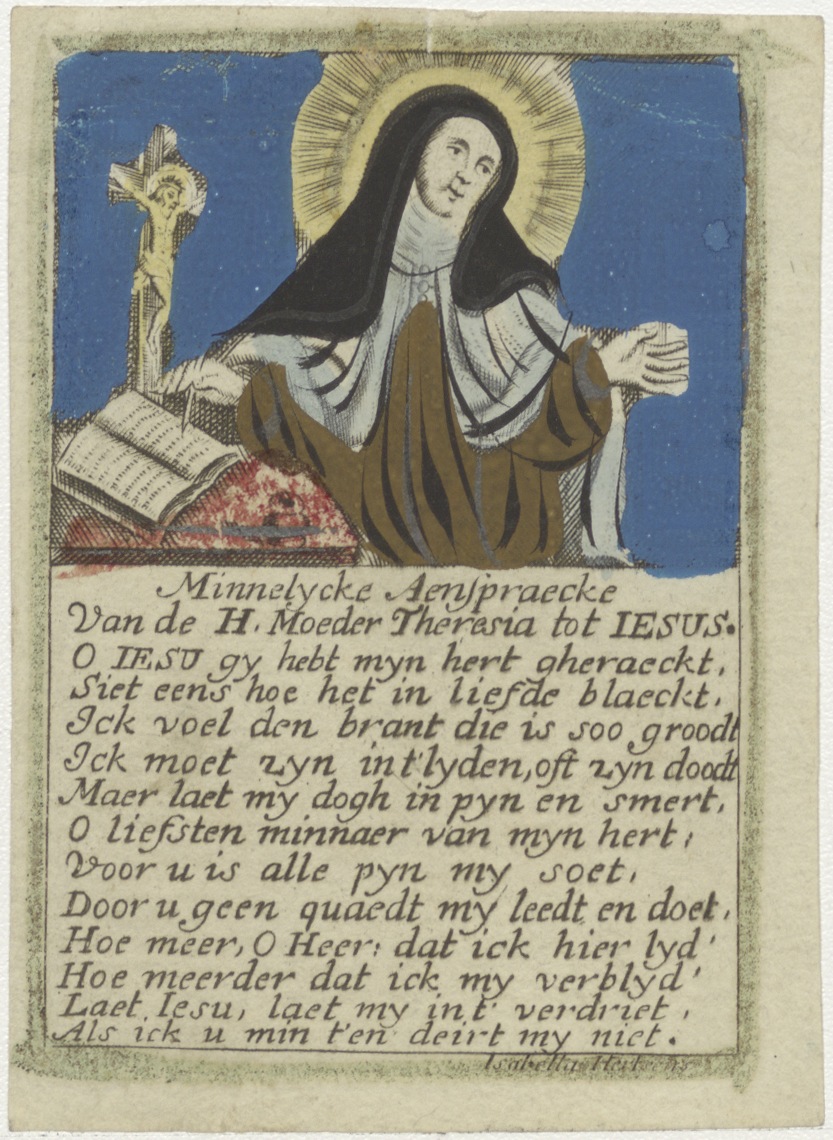 Minnelycke Aenspraecke
Van de H. Moeder Theresia tot IESUS.
O IESU gy hebt myn hert gheraeckt,
Siet eens hoe het in liefde blaeckt,
Ick voel den brant die is soo groodt
Ick moet zyn int'lyden, oft zyn doodt
Maer laet my dogh in pyn en smert,
O liefsten minnaer van myn hert,
Voor u is alle pyn my soet,
Door u geen quaedt my leedt en doet,
Hoe meer, O Heer: dat ick hier lyd'
Hoe meerder dat ick my verblyd'
Laet Iesu, laet my int' verdriet,
Als ick u min t'en deirt my niet.
Isabella Hertsens